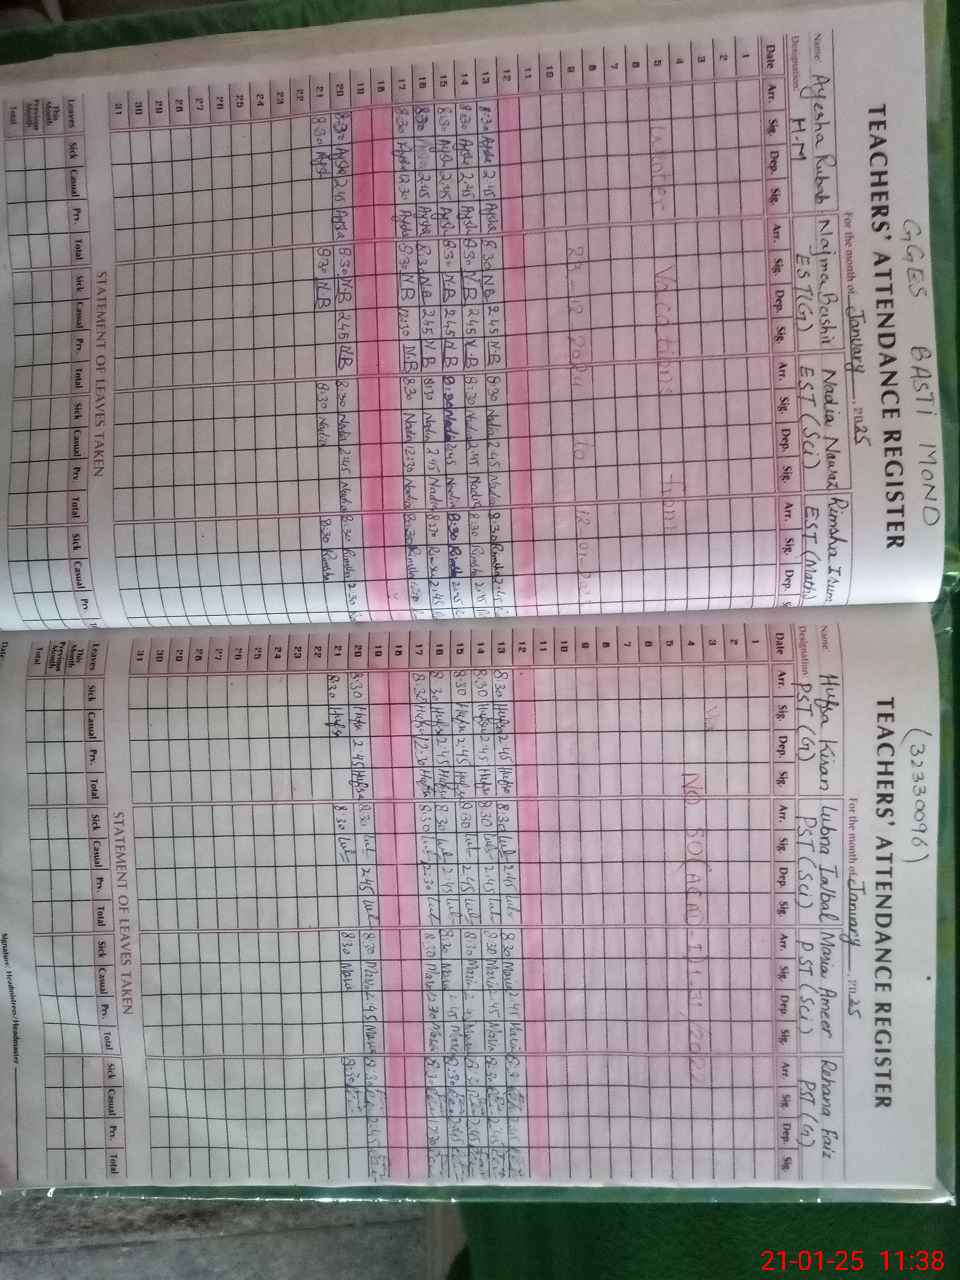 GGES BASTI MOND
TEACHERS' ATTENDANCE REGISTER
For the month of January, 2025
Name: Ayesha Rubab Najma Bashir Nadia Nawaz Rimsha Isum
Designation: H.M EST(G) EST(Sci) EST(Math)
Date Arr. Sig. Dep. Sig. Arr. Sig. Dep. Sig. Arr. Sig. Dep. Sig. Arr. Sig. Dep. S
1
2
3
4
5 Winter Vacations From
6
7
8
9 23-12-2024 to
10
11
12
13 8:30 Aysha 2:45 Aysha 8:30 N.B 2:45 N.B 8:30 Nadia 2:45 Nadia 8:30 Rimsha 2:45
14 8:30 Aysha 2:45 Aysha 8:30 N.B 2:45 N.B 8:30 Nadia 2:45 Nadia 8:30 Rimsha 2:45
15 8:30 Aysha 2:45 Aysha 8:30 N.B 2:45 N.B 8:30 Nadia 2:45 Nadia 8:30 Rimsha 2:45
16 8:30 Aysha 2:45 Aysha 8:30 N.B 2:45 N.B 8:30 Nadia 2:45 Nadia 8:30 Rimsha 2:45
17 8:30 Aysha 12:30 Aysha 8:30 N.B 12:30 N.B 8:30 Nadia 12:30 Nadia 8:30 Rimsha
18
19
20 8:30 Aysha 2:45 Aysha 8:30 N.B 2:45 N.B 8:30 Nadia 2:45 Nadia 8:30 Rimsha 2:30
21 8:30 Aysh 8:30 N.B 8:30 Nadia 8:30 Rimsha
22
23
24
25
26
27
28
29
30
31
STATEMENT OF LEAVES TAKEN
Leaves Sick Casual Prv. Total Sick Casual Prv. Total Sick Casual Prv. Total Sick Casual Prv.
This Month
Previous Month
Total
(32330096)
TEACHERS' ATTENDANCE REGISTER
For the month of January, 2025
Name: Hufsa Kiran Lubna Iqbal Maria Ameer Rehana Faiz
Designation: PST(G) PST(Sci) PST(Sci) PST(G)
Date Arr. Sig. Dep. Sig. Arr. Sig. Dep. Sig. Arr. Sig. Dep. Sig. Arr. Sig. Dep. Sig.
1
2
3
4 NO SO(
5
6
7
8
9
10
11
12
13 8:30 Hufsa 2:45 Hufsa 8:30 Lub 2:45 Lub 8:30 Maria 2:45 Maria 8:30 2:45
14 8:30 Hufsa 2:45 Hufsa 8:30 Lub 2:45 Lub 8:30 Maria 2:45 Maria 8:30 2:45
15 8:30 Hufsa 2:45 Hufsa 8:30 Lub 2:45 Lub 8:30 Maria 2:45 Maria 8:30 2:45
16 8:30 Hufsa 2:45 Hufsa 8:30 Lub 2:45 Lub 8:30 Maria 2:45 Maria 8:30 2:45
17 8:30 Hufsa 12:30 Hufsa 8:30 Lub 12:30 Lub 8:30 Maria 12:30 Maria 8:30 12:30
18
19
20 8:30 Hufsa 2:45 Hufsa 8:30 Lub 2:45 Lub 8:30 Maria 2:45 Maria 8:30 2:45
21 8:30 Hufsa 8:30 Lub 8:30 Maria 8:30
22
23
24
25
26
27
28
29
30
31
STATEMENT OF LEAVES TAKEN
Leaves Sick Casual Prv. Total Sick Casual Prv. Total Sick Casual Prv. Total Sick Casual Prv. Total
This Month
Previous Month
Total
Date: Signature: Headmistress/Headmaster
21-01-25 11:38